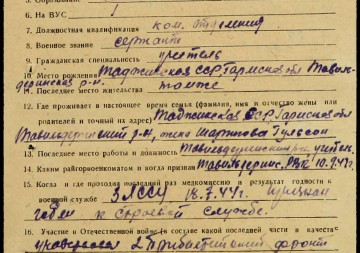 6. На ВУС
7. Должностная квалификация ком. отделения
8. Военное звание сержант
9. Гражданская специальность учитель
10. Место рождения Таджикская ССР Гармская обл Тавиль-
даринский р-н.
11. Последнее место жительства тоже
12. Где проживает в настоящее время семья (фамилия, имя и отчество жены или
родителей и точный их адрес) Таджикская ССР Гармская обл
Тавильдаринский р-н, жена Гульсон
13. Последнее место работы и должность учит.
14. Каким райгорвоенкоматом и когда призван Тавильдарис. РВК
15. Когда и где проходил последний раз медкомиссию и результат годности к
военной службе ЗЛССУ 18.7.44г. признан
годен к строевой службе.
16. Участие в Отечественной войне (в составе какой последней части и в качестве
2 Прибалтийский фронт